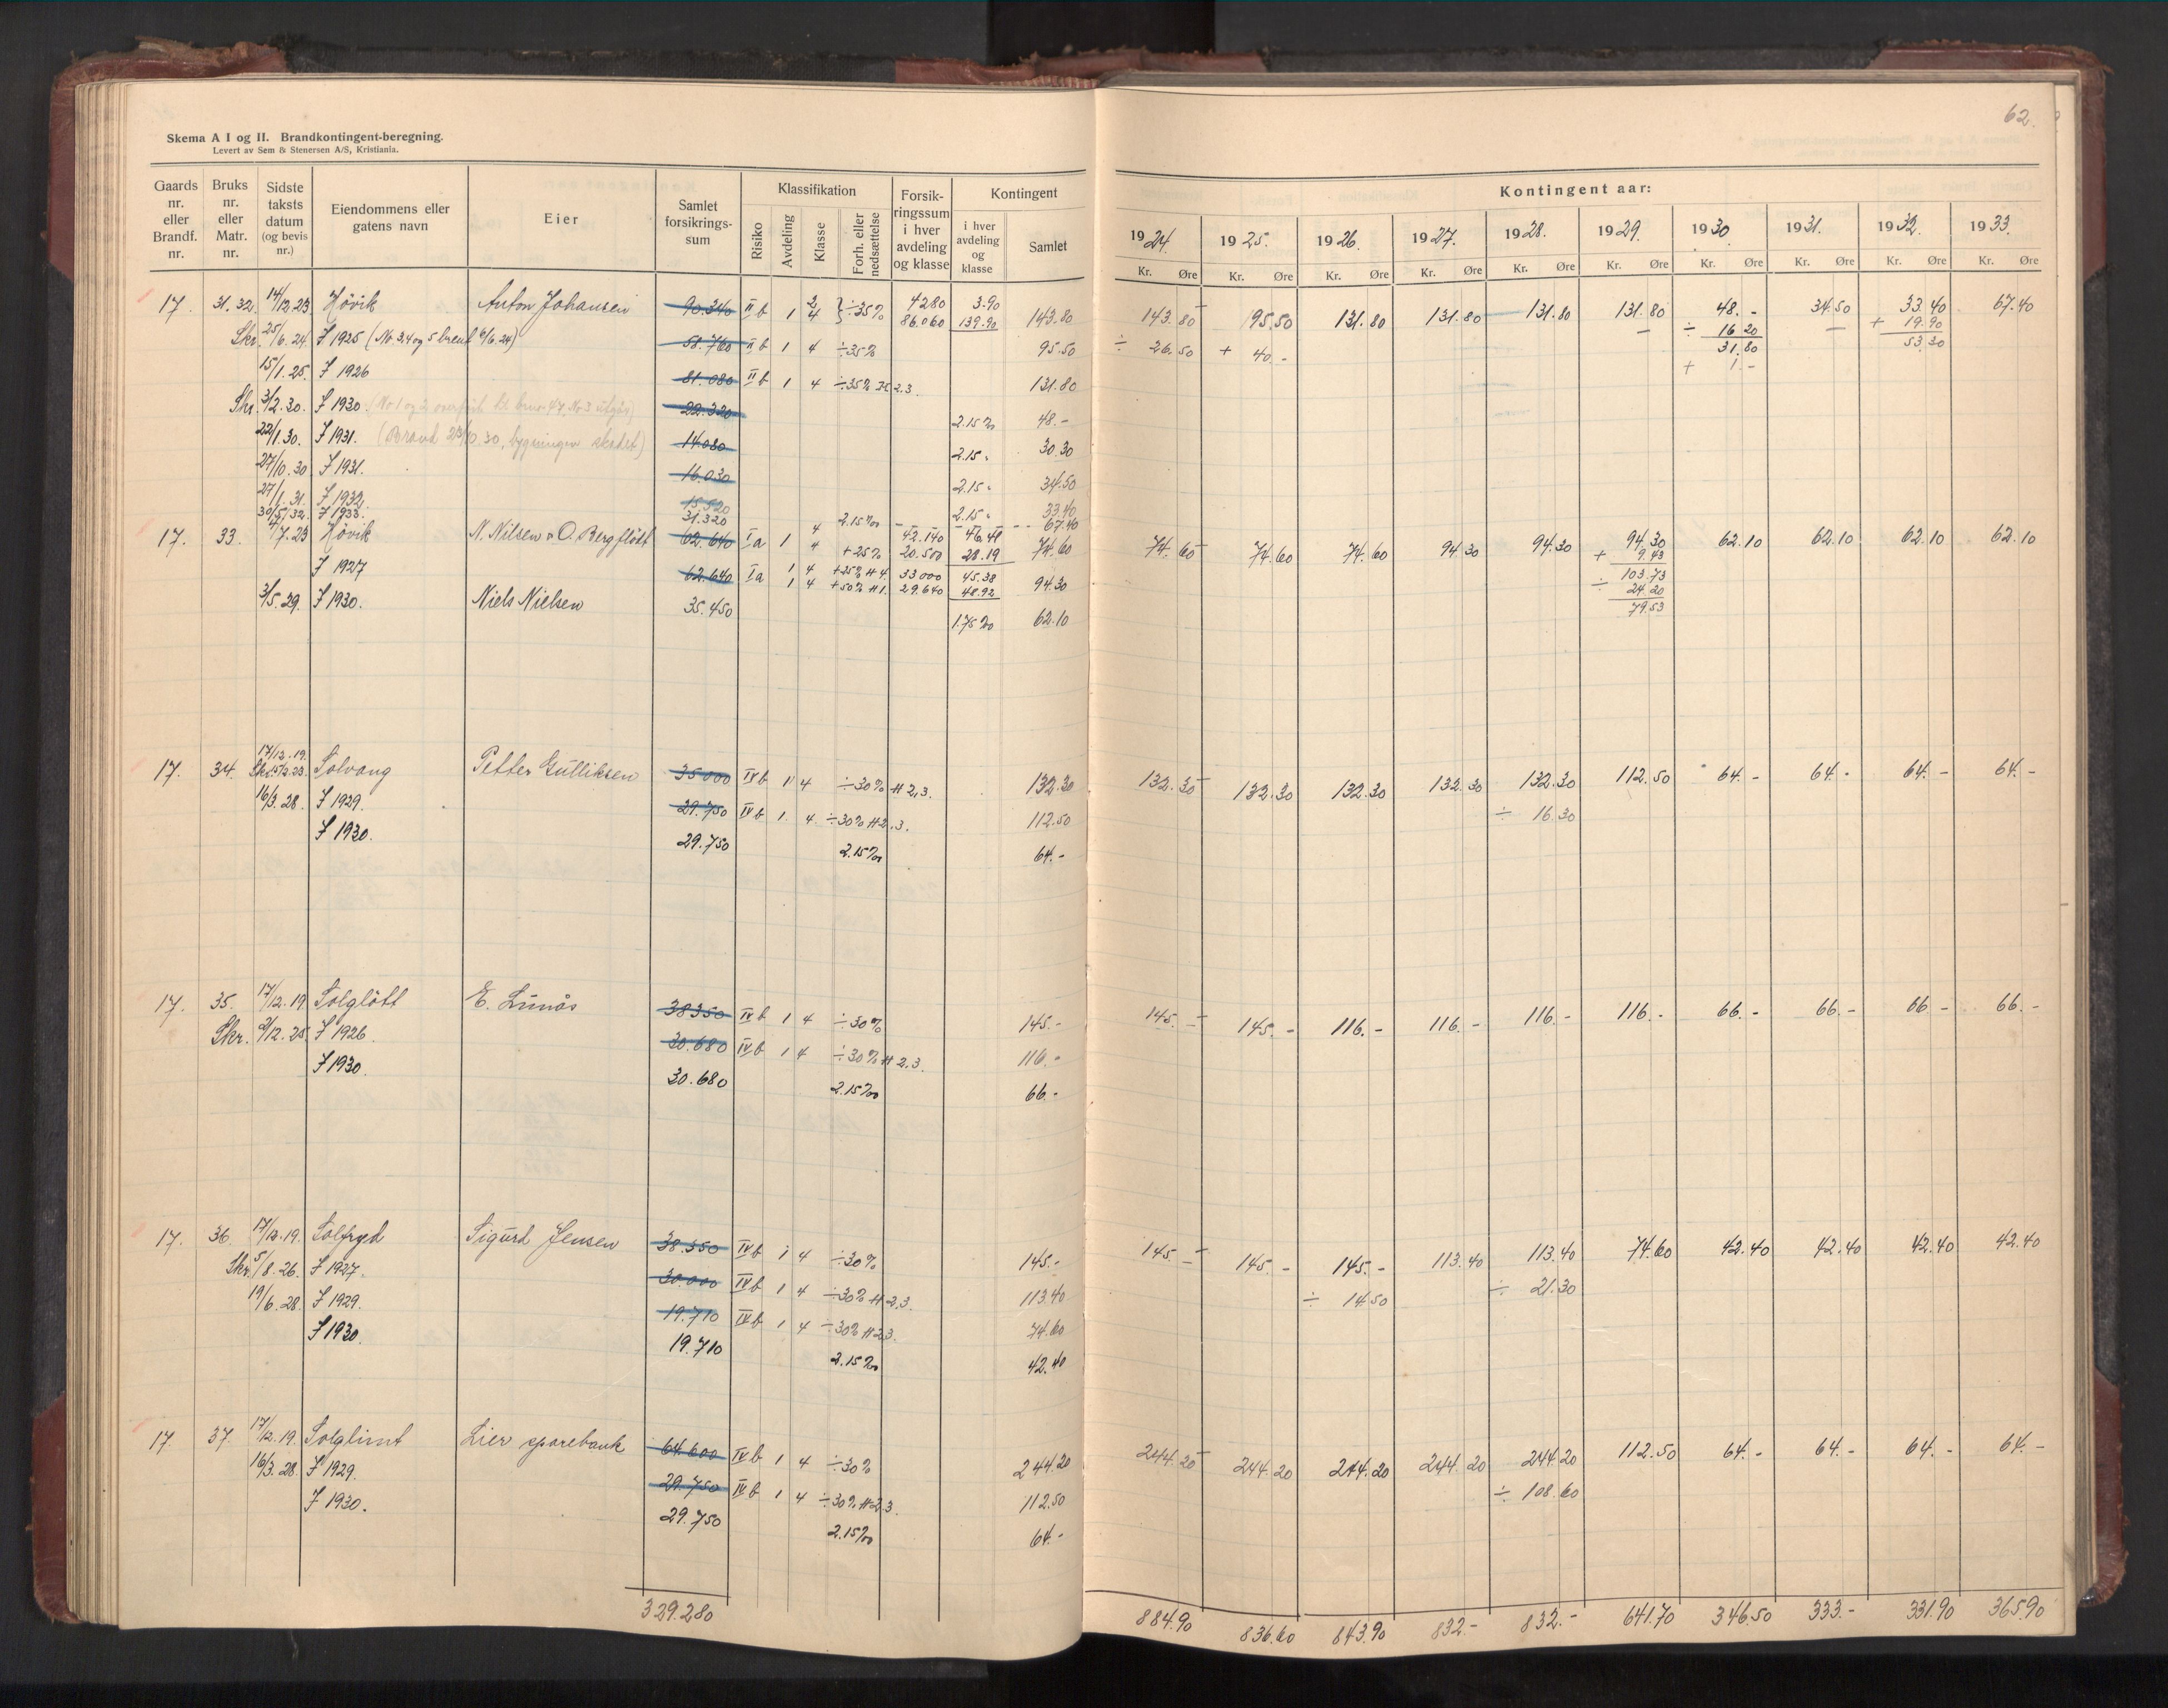 62.
Skema A I og II. Brandkontingent-beregning.
Levert av Sem & Stenersen A/S, Kristiania.
Gaards nr. eller Brandf. nr.
Bruks nr. eller Matr. nr.
Sidste taksts datum (og bevis nr.)
Eiendommens eller gatens navn
Eier
Samlet forsikrings-sum
Klassifikation
Risiko
Avdeling
Klasse
Forh. eller nedsættelse
Forsik-ringssum i hver avdeling og klasse
Kontingent
i hver avdeling og klasse
Samlet
Kontingent aar:
1924. 1925. 1926. 1927. 1928. 1929. 1930. 1931. 1932. 1933.
Kr. Øre Kr. Øre Kr. Øre Kr. Øre Kr. Øre Kr. Øre Kr. Øre Kr. Øre Kr. Øre Kr. Øre
17. 31.32. 14/12 23 Hövik Anton Johansen 90.340 II b 1 2 4 } ÷35% 4280 3.90
86.060 139.90 143.80 143.80 195.50 131.80 131.80 131.80 131.80 48.- 34.50 33.40 67.40
Skr. 25/6.24. F 1925 (No 3.4 og 5 brent 6/6.24) 58.760 II b 1 4 ÷35% 95.50 ÷ 26.50 + 40.- ÷ 16 20 + 19.90
31.80 53.30
15/1.25. F 1926 81.080 II b 1 4 ÷35% # 2.3. 131.80 + 1.-
Skr. 3/2.30. F 1930 (No 1 og 2 overført til brnr 47, No 3 utgår) 22.320 2.15‰ 48.-
22/1.30. F 1931. (Brand 23/10.30, bygningen skadet) 14.080 2.15 " 30.30
27/10.30 F 1931. 16.030 2.15 " 34.50
27/1.31. F 1932. 15.520 2.15 " 33.40
30/5.32. F 1933. 31.320 2.15‰ 67.40
17. 33. 4/7.23 Hövik N. Nilsen & O. Bergflödt 62.640 I a 1 4 42.140 46.41
4 +25% 20.500 28.19 74.60 74.60 74.60 74.60 94.30 94.30 94.30 62.10 62.10 62.10 62.10
+ 9.43
F 1927 62.640 I a 1 4 +25% # 4. 33000 45.38 103.73
1 4 +50% # 1. 29.640 48.92 94.30 ÷ 24.20
3/5.29. F 1930. Niels Nielsen 35.450 1.75‰ 62.10 79.53
17. 34. 17/12.19. Solvang Petter Gulliksen 35000 IV b 1 4 ÷30% # 2,3. 132.30 132.30 132.30 132.30 132.30 132.30 112.50 64.- 64.- 64.- 64.-
Skr. 5/2.23.
16/3.28. F 1929. 29.750 IV b 1. 4. ÷30% # 2.3. 112.50 ÷ 16.30
F 1930. 29.750 2.15‰ 64.-
17. 35. 17/12.19 Solglött E. Lunås 38350 IV b 1 4 ÷30% 145.- 145.- 145.- 116.- 116.- 116.- 116.- 66.- 66.- 66.- 66.-
Skr. 2/12.25. F 1926. 30.680 IV b 1 4 ÷30% # 2,3. 116.-
F 1930. 30.680 2.15‰ 66.-
17. 36. 17/12.19. Solfryd Sigurd Jensen 38.350 IV b 1 4 ÷30% 145.- 145.- 145.- 145.- 113.40 113.40 74.60 42.40 42.40 42.40 42.40
Skr. 5/8.26. F 1927. 30000 IV b 1 4 ÷30% # 2,3. 113.40 ÷ 14.50 ÷ 21.30
19/6.28. F 1929. 19.710 IV b 1 4 ÷30% # 2.3. 74.60
F 1930. 19.710 2.15‰ 42.40
17. 37. 17/12.19. Solglimt Lier sparebank 64.600 IV b 1 4 ÷30% 244.20 244.20 244.20 244.20 244.20 244.20 112.50 64.- 64.- 64.- 64.-
16/3.28. F 1929. 29.750 IV b 1 4 ÷30% # 2,3. 112.50 ÷ 108.60
F 1930. 29.750 2.15‰ 64.-
329.280 884.90 836.60 843.90 832.- 832.- 641.70 346.50 333.- 331.90 365.90